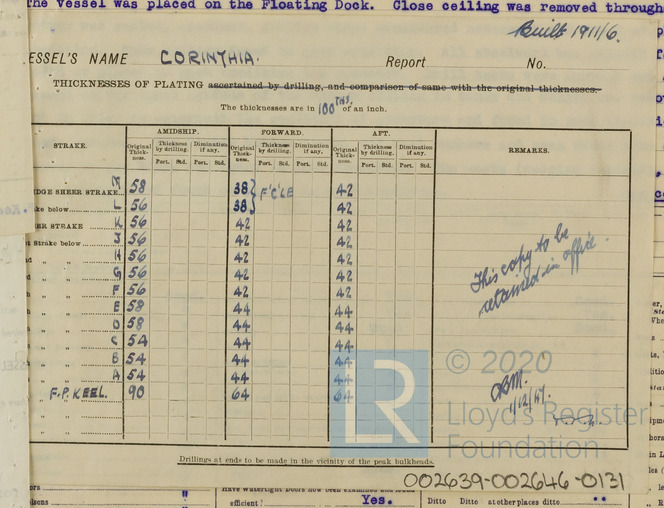 The vessel was placed on the Floating Dock. Close ceiling was removed through
Built 1911/6.
ESSEL'S NAME CORINTHIA. Report No.
THICKNESSES OF PLATING ascertained by drilling, and comparison of same with the original thicknesses.
The thicknesses are in 100THS. of an inch.
STRAKE. AMIDSHIP. FORWARD. AFT. REMARKS.
Original Thickness. Thickness by drilling. Diminution if any. Original Thickness. Thickness by drilling. Diminution if any. Original Thickness. Thickness by drilling. Diminution if any.
Port. Std. Port. Std. Port. Std. Port. Std. Port. Std. Port. Std.
IDGE SHEER STRAKE M 58 38 } F'C'LE 42
ke below L 56 38 42
ER STRAKE K 56 42 42
t Strake below J 56 42 42
d " " H 56 42 42
d " " G 56 42 42
h " " F 56 42 42
" " E 58 44 44
" " D 58 44 44
" " C 54 44 44
" " B 54 44 44
" " A 54 44 44
" F.P. KEEL. 90 64 64
" "
" "
This copy to be
retained in office.
1/12/47.
LR © 2020
Lloyd's Register
Foundation
Drillings at ends to be made in the vicinity of the peak bulkheads.
002639-002646-0131
ors " Have Watertight Doors now been examined and found
efficient? Yes. Ditto Ditto at other places ditto ..